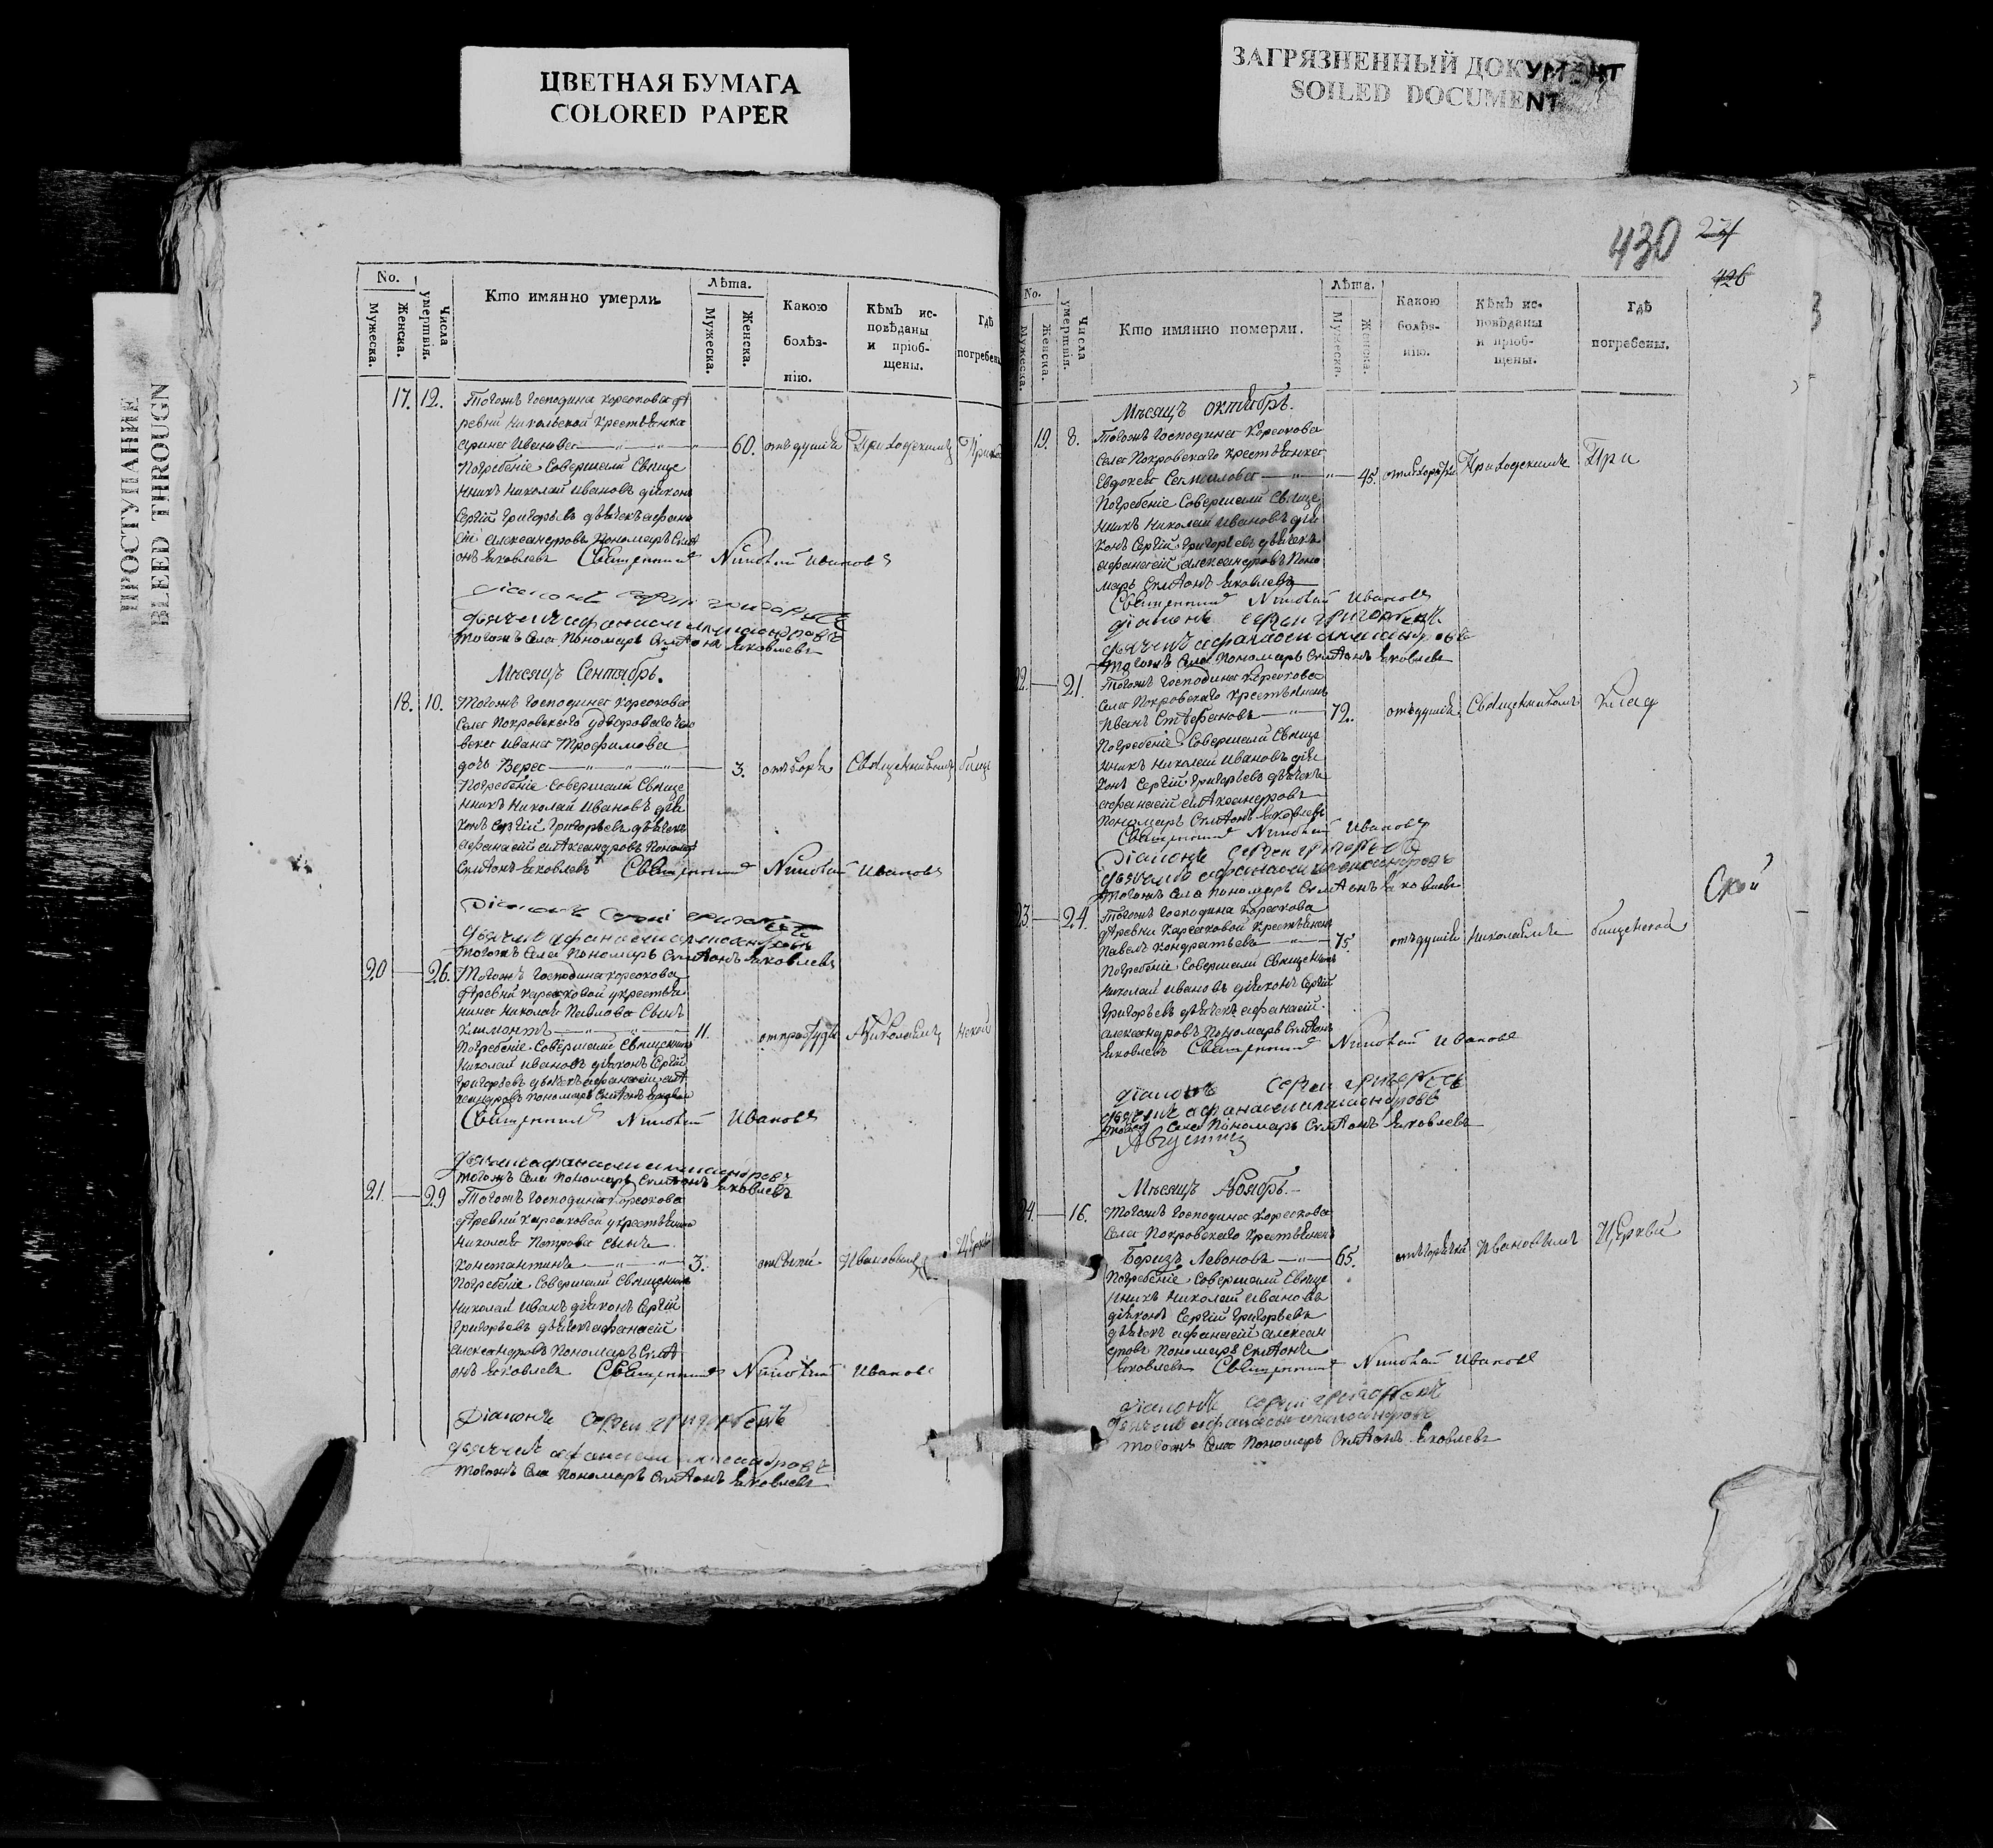 ЦВЕТНАЯ БУМАГА
COLORED PAPER
ЗАГРЯЗНЕННЫЙ ДОКУМЕНТ
SOILED DOCUMENT
ПРОСТУПАНИЕ
BLEED THROUGN
No.
Мужеска.
Женска.
Числа умертвія.
Кто имянно умерли.
Лѣта.
Мужеска.
Женска.
Какою болѣз-нію.
Кѣмъ ис-
повѣданы
и пріоб-
щены.
Гдѣ
погребены
17. 12. Тогожъ Господина Корсакова де
ревни Никольской Крестьянка
Ирина Иванова 60. отъ удушія Приходскимъ При
Погребеніе Совершали Свяще
нникъ Николай Ивановъ діякон
Сергій Григорьевъ дьячекъ афана
сій александровъ Пономарь Симі
онъ Яковлевъ Священникъ Николай Ивановъ
діаконъ сергій григорьевъ
дьячекъ афанасий александровъ
тогожъ Села Пономарь Симіонъ Яковлевъ
Мѣсяцъ Сентябрь.
18. 10. Тогожъ Господина Корсакова
Села Покровскаго удвороваго чело
века Ивана Трофимова
дочь Вера 3. отъ кори Священникомъ
Погребеніе Совершали Свяще
нникъ Николай Ивановъ дія
конъ Сергій Григорьевъ дьячекъ
афанасій александровъ Пономарь
Симіонъ Яковлевъ Священникъ Николай Ивановъ
Діаконъ Сергій григорьевъ
дьячекъ афанасий александровъ
тогожъ Села Пономарь Симіонъ Яковлевъ
20 26. Тогожъ Господина корсакова
деревни карсаковой укрестья
нина Николая Павлова Сынъ
климонтъ 11. отъ простуды Николаемъ ской
Погребеніе Совершали Священникъ
Николай Ивановъ діяконъ Сергій
Григорьевъ дьячекъ афанасій але
ксандровъ пономарь Симіонъ Яковлев
Священникъ Николай Ивановъ
дьячекъ афанасий александровъ
тогожъ Села Пономарь Симіонъ Яковлевъ
21. 29 Тогожъ Господина Корсакова
деревни карсаковой укрестьянина
Николая Петрова сынъ
константинъ 3. Ивановымъ Церкв
Погребеніе Совершали Священникъ
Николай Иванъ діяконъ Сергій
Григорьевъ дьячекъ афанасій
александровъ Пономарь Симі
онъ Яковлевъ Священникъ Николай Ивановъ
Діаконъ сергій григорьевъ
дьячекъ афанасий александровъ
тогожъ Села Пономарь Симіонъ Яковлевъ
430
426
No.
Мужеска.
Женска.
Числа умертвія.
Кто имянно померли.
Лѣта.
Мужеска.
Женска.
Какою
болѣз-
нію.
Кѣмъ ис-
повѣданы
и пріоб-
щены.
Гдѣ
погребены.
Мѣсяцъ октябрь.
19. 8. Тогожъ Господина Корсакова
Села Покровскаго крестьянка
Евдокея Самойлова 45. Приходскимъ При
Погребеніе Совершали Свяще
нникъ Николай Ивановъ дія
конъ Сергій Григорьевъ дьячекъ
афанасій александровъ Поно
марь Симіонъ Яковлевъ
Священникъ Николай Ивановъ
діаконъ сергій григорьевъ
дьячекъ афанасий александровъ
тогожъ Села Пономарь Симіонъ Яковлевъ
22. 21. Тогожъ Господина Корсакова
Села Покровскаго крестьянинъ
Иванъ Стефановъ 72. отъ удушія Священникомъ клад
Погребеніе Совершали Свяще
нникъ Николай Ивановъ дія
конъ Сергій Григорьевъ дьячекъ
афанасій александровъ
Пономарь Симіонъ Яковлевъ
Священникъ Николай Ивановъ
Діаконъ сергій григорьевъ
дьячекъ афанасий александровъ
тогожъ Села Пономарь Симіонъ Яковлевъ
23. 24. Тогожъ Господина Корсакова
деревни Карсаковой Крестьянинъ
Павелъ кондратьевъ 75. отъ удушія Николаемъ бищенской
Погребеніе Совершали Священникъ
Николай Ивановъ діяконъ Сергій
Григорьевъ дьячекъ афанасій
александровъ Пономарь Симіонъ
Яковлевъ Священникъ Николай Ивановъ
діаконъ сергій григорьевъ
дьячекъ афанасий александровъ
тогожъ Села Пономарь Симіонъ Яковлевъ
Мѣсяцъ Ноябрь.
24. 16. Тогожъ Господина Корсакова
Села Покровскаго крестьянинъ
Боризъ Левоновъ 65. отъ горячки Ивановымъ Церкви
Погребеніе Совершали Свяще
нникъ Николай Ивановъ
діяконъ Сергій Григорьевъ
дьячекъ афанасій алексан
дровъ Пономарь Симіонъ
Яковлевъ Священникъ Николай Ивановъ
діаконъ сергій григорьевъ
дьячекъ афанасий александровъ
тогожъ Села Пономарь Симіонъ Яковлевъ